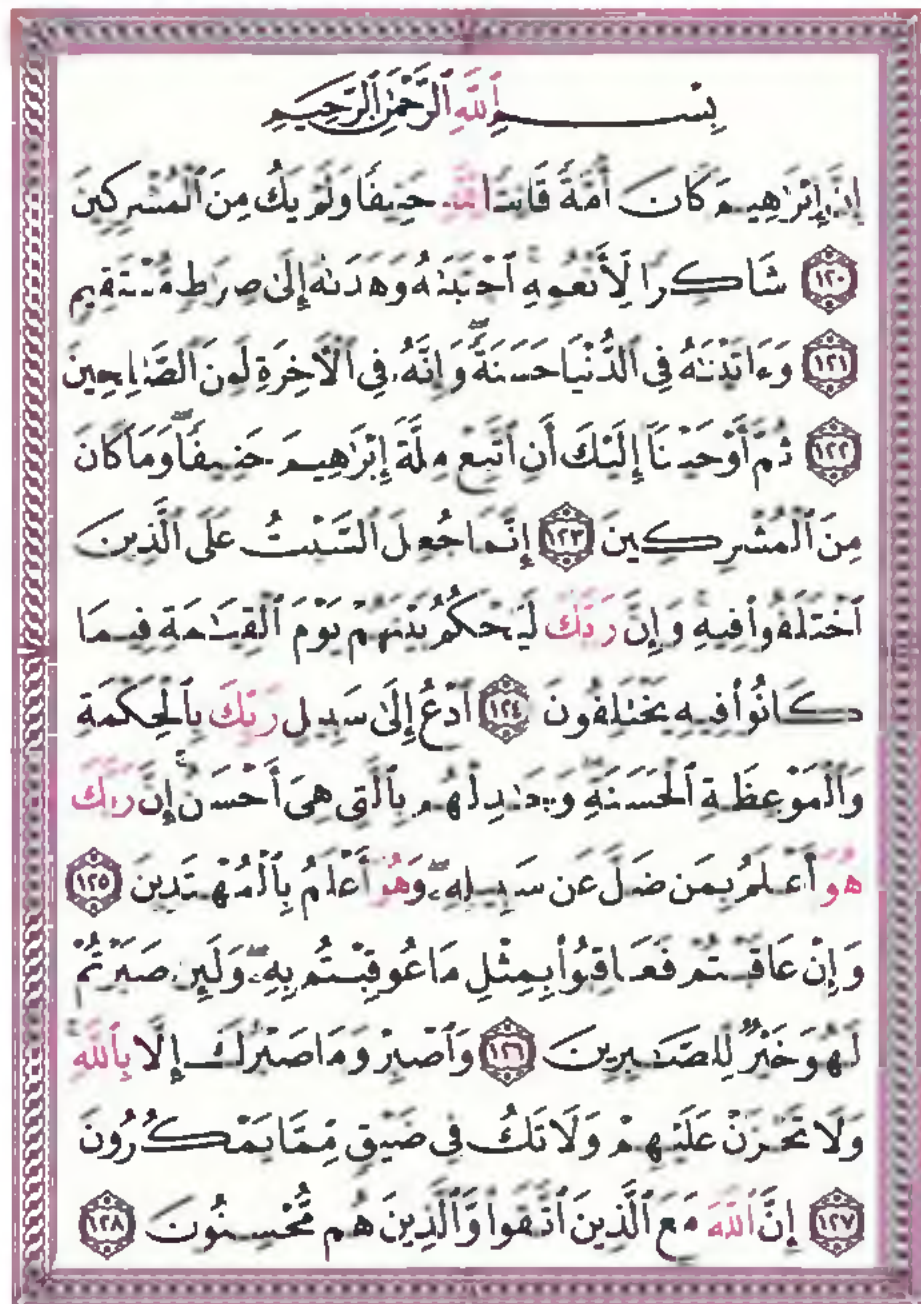 بِسْمِ ٱللَّهِ ٱلرَّحْمَٰنِ ٱلرَّحِيمِ
إِنَّ إِبْرَٰهِيمَ كَانَ أُمَّةً قَانِتًا لِّلَّهِ حَنِيفًا وَلَمْ يَكُ مِنَ ٱلْمُشْرِكِينَ
١٢٠ شَاكِرًا لِّأَنْعُمِهِ ٱجْتَبَىٰهُ وَهَدَىٰهُ إِلَىٰ صِرَٰطٍ مُّسْتَقِيمٍ
١٢١ وَءَاتَيْنَٰهُ فِى ٱلدُّنْيَا حَسَنَةً ۖ وَإِنَّهُۥ فِى ٱلْءَاخِرَةِ لَمِنَ ٱلصَّٰلِحِينَ
١٢٢ ثُمَّ أَوْحَيْنَآ إِلَيْكَ أَنِ ٱتَّبِعْ مِلَّةَ إِبْرَٰهِيمَ حَنِيفًا ۖ وَمَا كَانَ
مِنَ ٱلْمُشْرِكِينَ ١٢٣ إِنَّمَا جُعِلَ ٱلسَّبْتُ عَلَى ٱلَّذِينَ
ٱخْتَلَفُوا۟ فِيهِ ۚ وَإِنَّ رَبَّكَ لَيَحْكُمُ بَيْنَهُمْ يَوْمَ ٱلْقِيَٰمَةِ فِيمَا
كَانُوا۟ فِيهِ يَخْتَلِفُونَ ١٢٤ ٱدْعُ إِلَىٰ سَبِيلِ رَبِّكَ بِٱلْحِكْمَةِ
وَٱلْمَوْعِظَةِ ٱلْحَسَنَةِ ۖ وَجَٰدِلْهُم بِٱلَّتِى هِىَ أَحْسَنُ ۚ إِنَّ رَبَّكَ
هُوَ أَعْلَمُ بِمَن ضَلَّ عَن سَبِيلِهِۦ ۖ وَهُوَ أَعْلَمُ بِٱلْمُهْتَدِينَ ١٢٥
وَإِنْ عَاقَبْتُمْ فَعَاقِبُوا۟ بِمِثْلِ مَا عُوقِبْتُم بِهِۦ ۖ وَلَئِن صَبَرْتُمْ
لَهُوَ خَيْرٌ لِّلصَّٰبِرِينَ ١٢٦ وَٱصْبِرْ وَمَا صَبْرُكَ إِلَّا بِٱللَّهِ ۚ
وَلَا تَحْزَنْ عَلَيْهِمْ وَلَا تَكُ فِى ضَيْقٍ مِّمَّا يَمْكُرُونَ
١٢٧ إِنَّ ٱللَّهَ مَعَ ٱلَّذِينَ ٱتَّقَوا۟ وَّٱلَّذِينَ هُم مُّحْسِنُونَ ١٢٨